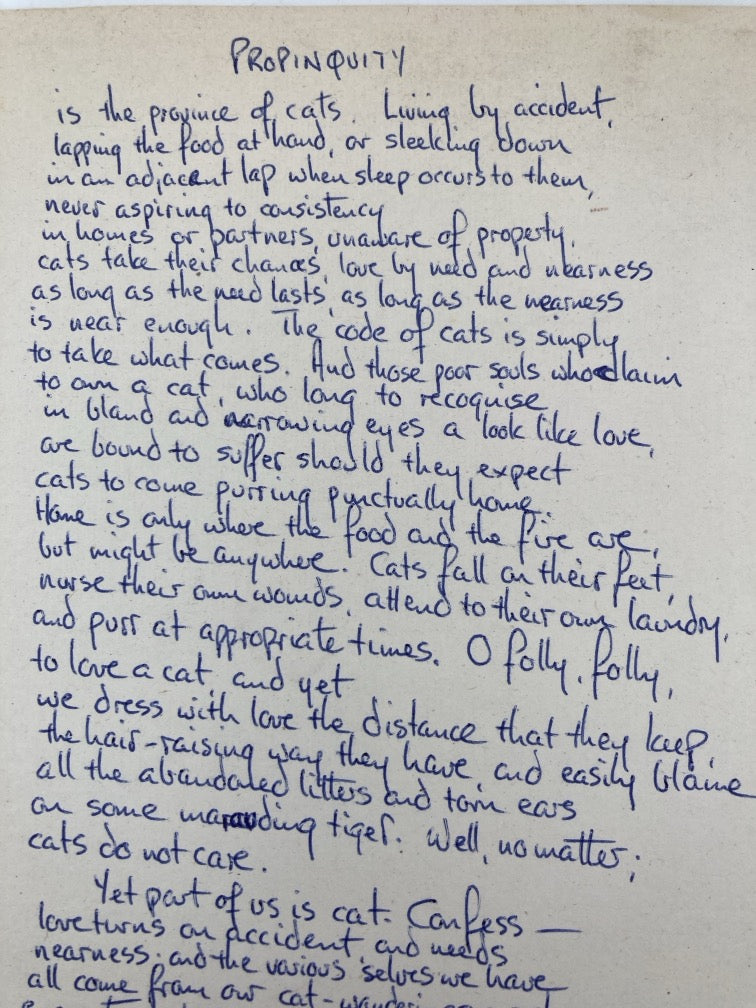 PROPINQUITY
is the province of cats. Living by accident,
lapping the food at hand, or sleeking down
in an adjacent lap when sleep occurs to them,
never aspiring to consistency
in homes or partners, unaware of property,
cats take their chances, love by need and nearness
as long as the need lasts, as long as the nearness
is near enough. The code of cats is simply
to take what comes. And those poor souls who claim
to own a cat, who long to recognise
in bland and narrowing eyes a look like love,
are bound to suffer should they expect
cats to come purring punctually home.
Home is only where the food and the fire are,
but might be anywhere. Cats fall on their feet,
nurse their own wounds, attend to their own laundry,
and purr at appropriate times. O folly, folly,
to love a cat, and yet
we dress with love the distance that they keep,
the hair-raising way they have, and easily blame
all the abandoned litters and torn ears
on some marauding tiger. Well, no matter;
cats do not care.
Yet part of us is cat. Confess —
love turns on accident, and needs
nearness; and the various selves we have
all come from our cat-wanderings